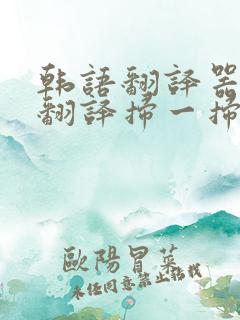 韩語翻譯器
翻譯掃一掃
歐陽冒菜
未任同意禁止枯栽